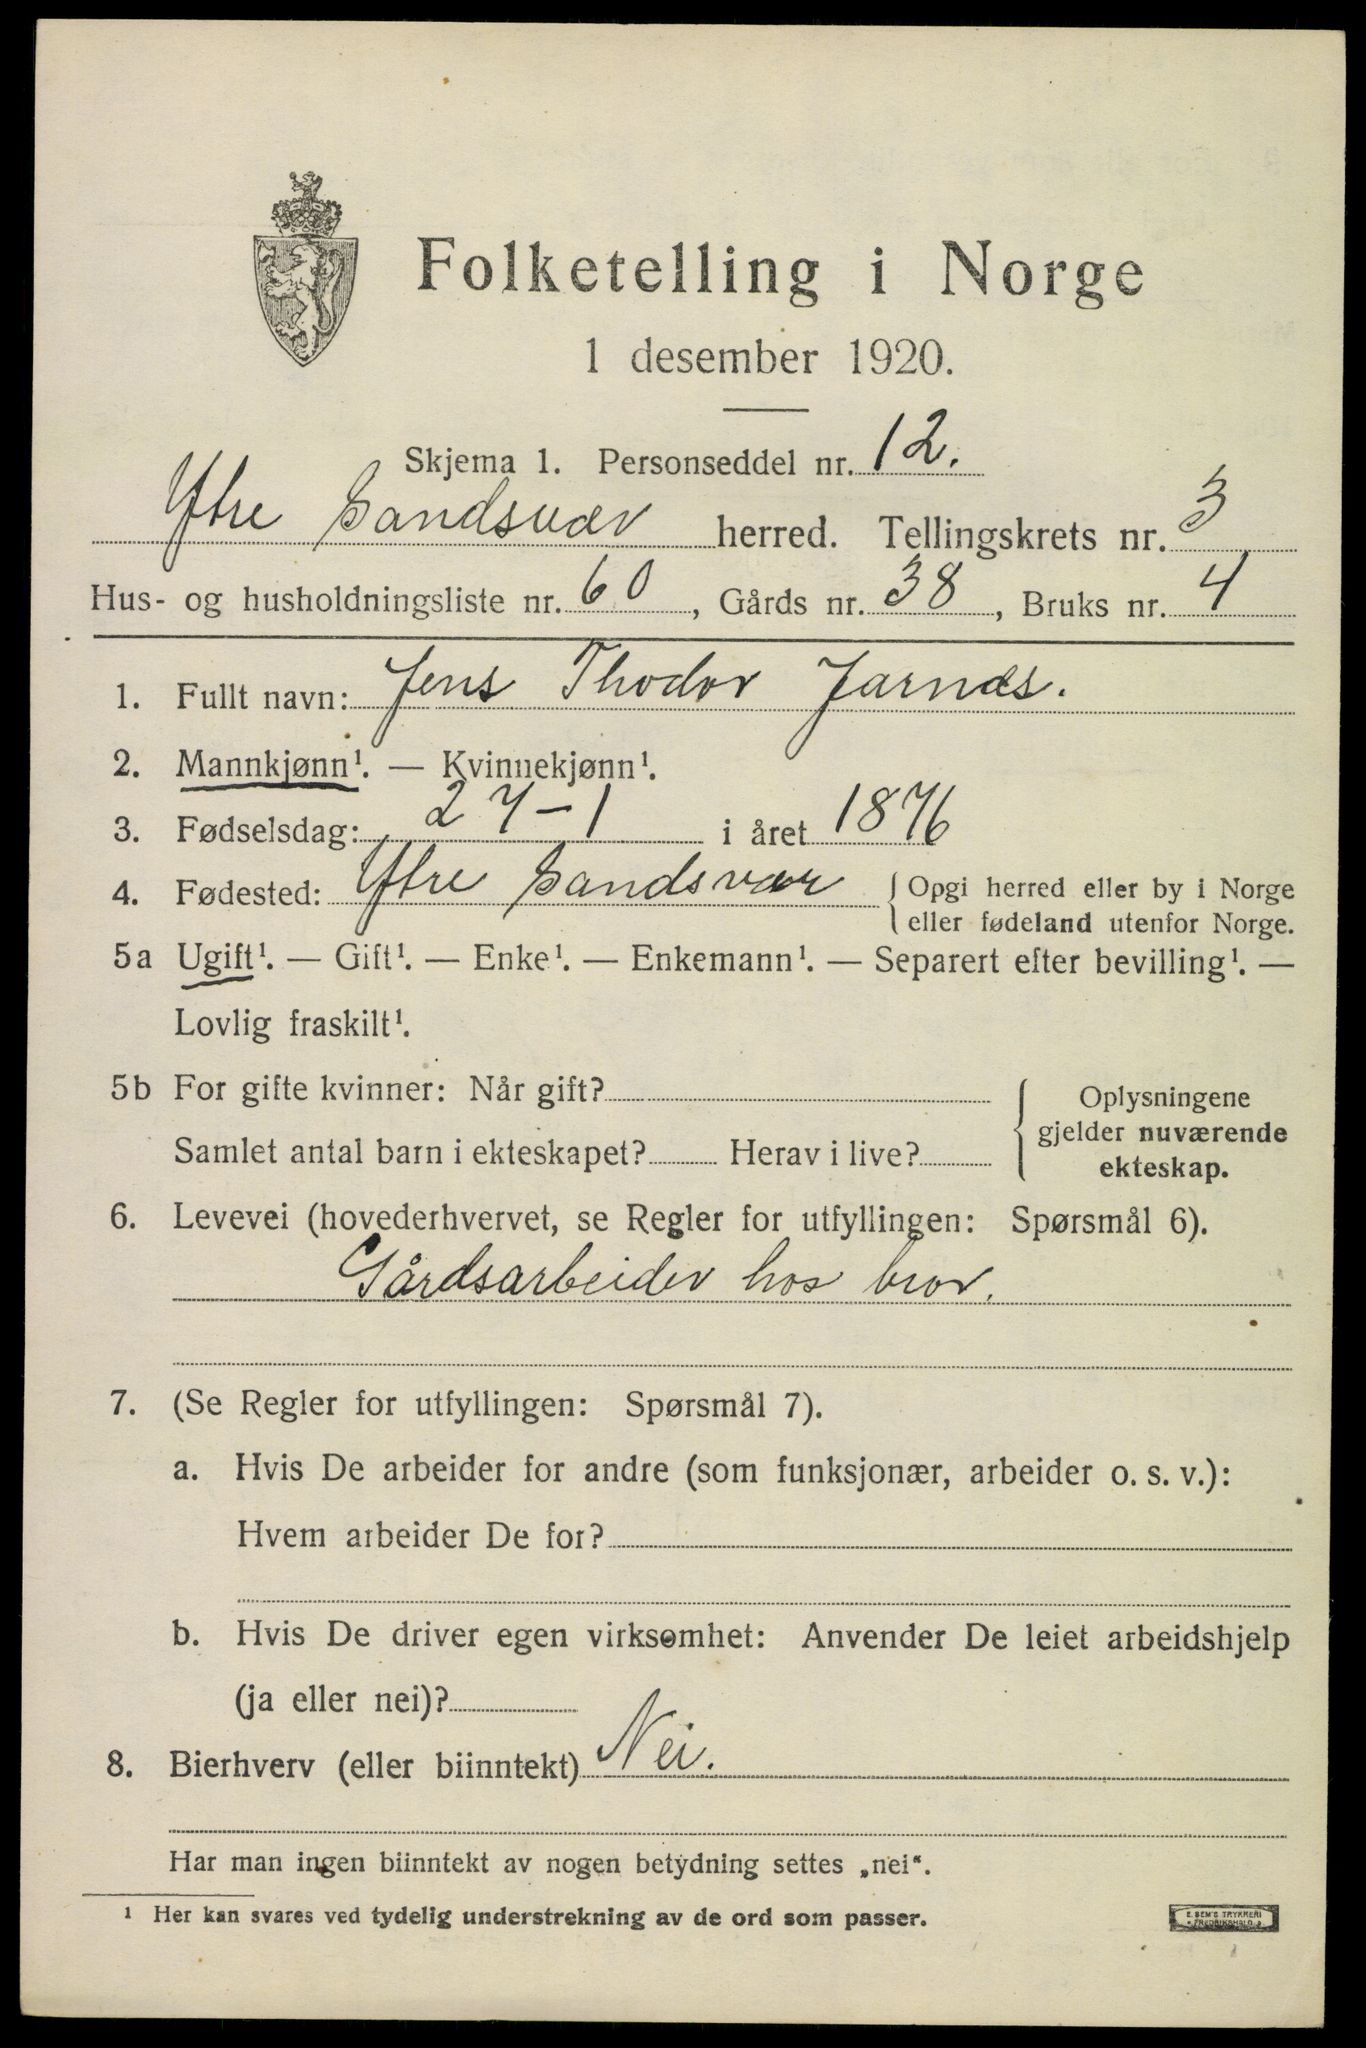 Folketelling i Norge
1 desember 1920.
Skjema 1. Personseddel nr. 12.
Ytre Sandsvær herred. Tellingskrets nr. 3
Hus- og husholdningsliste nr. 60, Gårds nr. 38, Bruks nr. 4
1. Fullt navn: Jens Thodor Jarnæs.
2. Mannkjønn¹. — Kvinnekjønn¹.
3. Fødselsdag: 27-1 i året 1876
4. Fødested: Ytre Sandsvær { Opgi herred eller by i Norge
eller fødeland utenfor Norge.
5a Ugift¹. — Gift¹. — Enke¹. — Enkemann¹. — Separert efter bevilling¹. —
Lovlig fraskilt¹.
5b For gifte kvinner: Når gift?
Samlet antal barn i ekteskapet? Herav i live?
Oplysningene
gjelder nuværende
ekteskap.
6. Levevei (hovederhvervet, se Regler for utfyllingen: Spørsmål 6).
Gårdsarbeider hos bror.
7. (Se Regler for utfyllingen: Spørsmål 7).
a. Hvis De arbeider for andre (som funksjonær, arbeider o. s. v.):
Hvem arbeider De for?
b. Hvis De driver egen virksomhet: Anvender De leiet arbeidshjelp
(ja eller nei)?
8. Bierhverv (eller biinntekt) Nei.
Har man ingen biinntekt av nogen betydning settes „nei“.
¹ Her kan svares ved tydelig understrekning av de ord som passer.
E. SEM'S TRYKKERI
FREDRIKSHALD